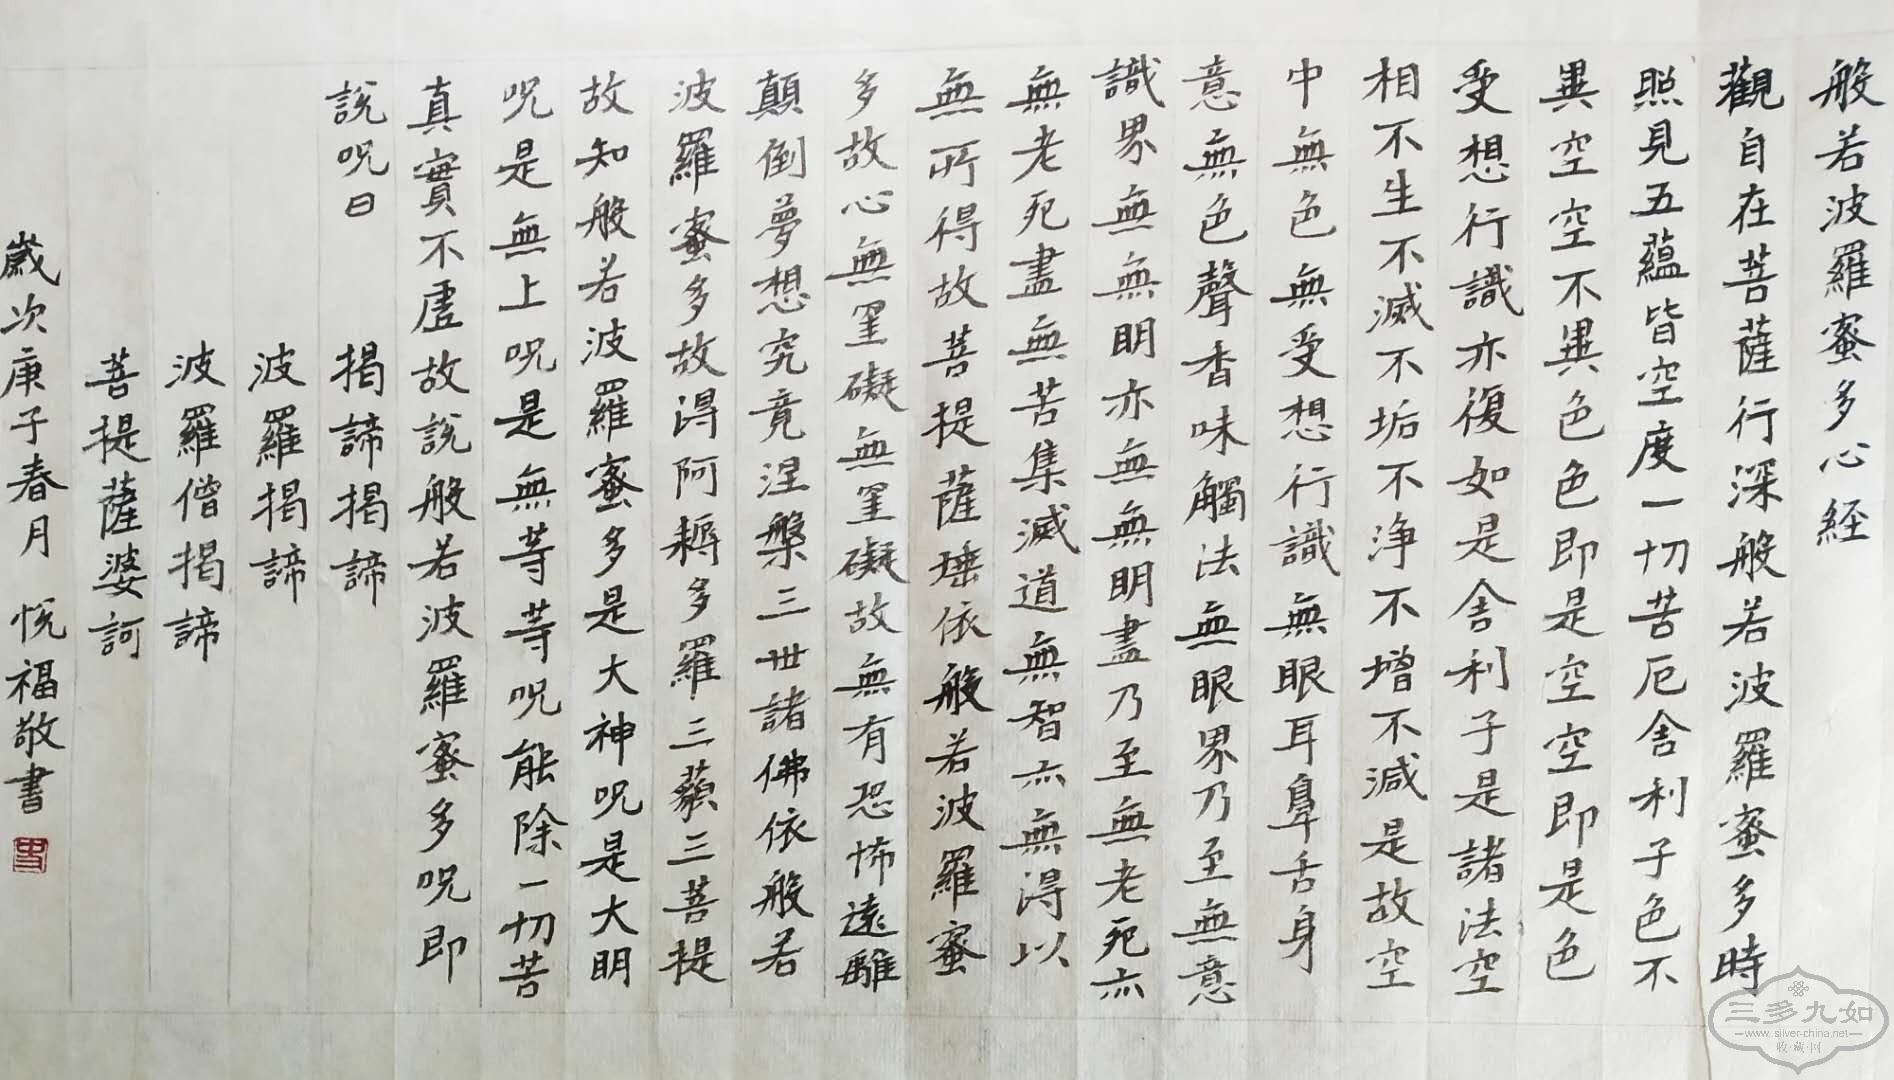 般若波羅蜜多心経
觀自在菩薩行深般若波羅蜜多時
照見五蘊皆空度一切苦厄舍利子色不
異空空不異色色即是空空即是色
受想行識亦復如是舍利子是諸法空
相不生不滅不垢不浄不增不減是故空
中無色無受想行識無眼耳鼻舌身
意無色聲香味觸法無眼界乃至無意
識界無無明亦無無明盡乃至無老死亦
無老死盡無苦集滅道無智亦無得以
無所得故菩提薩埵依般若波羅蜜
多故心無罣礙無罣礙故無有恐怖遠離
顛倒夢想究竟涅槃三世諸佛依般若
波羅蜜多故得阿耨多羅三藐三菩提
故知般若波羅蜜多是大神呪是大明
呪是無上呪是無等等呪能除一切苦
真實不虛故說般若波羅蜜多呪即
說呪曰 揭諦揭諦
波羅揭諦
波羅僧揭諦
菩提薩婆訶
歲次庚子春月 悅福敬書
三多九如
www.silver-china.net
收·藏·网